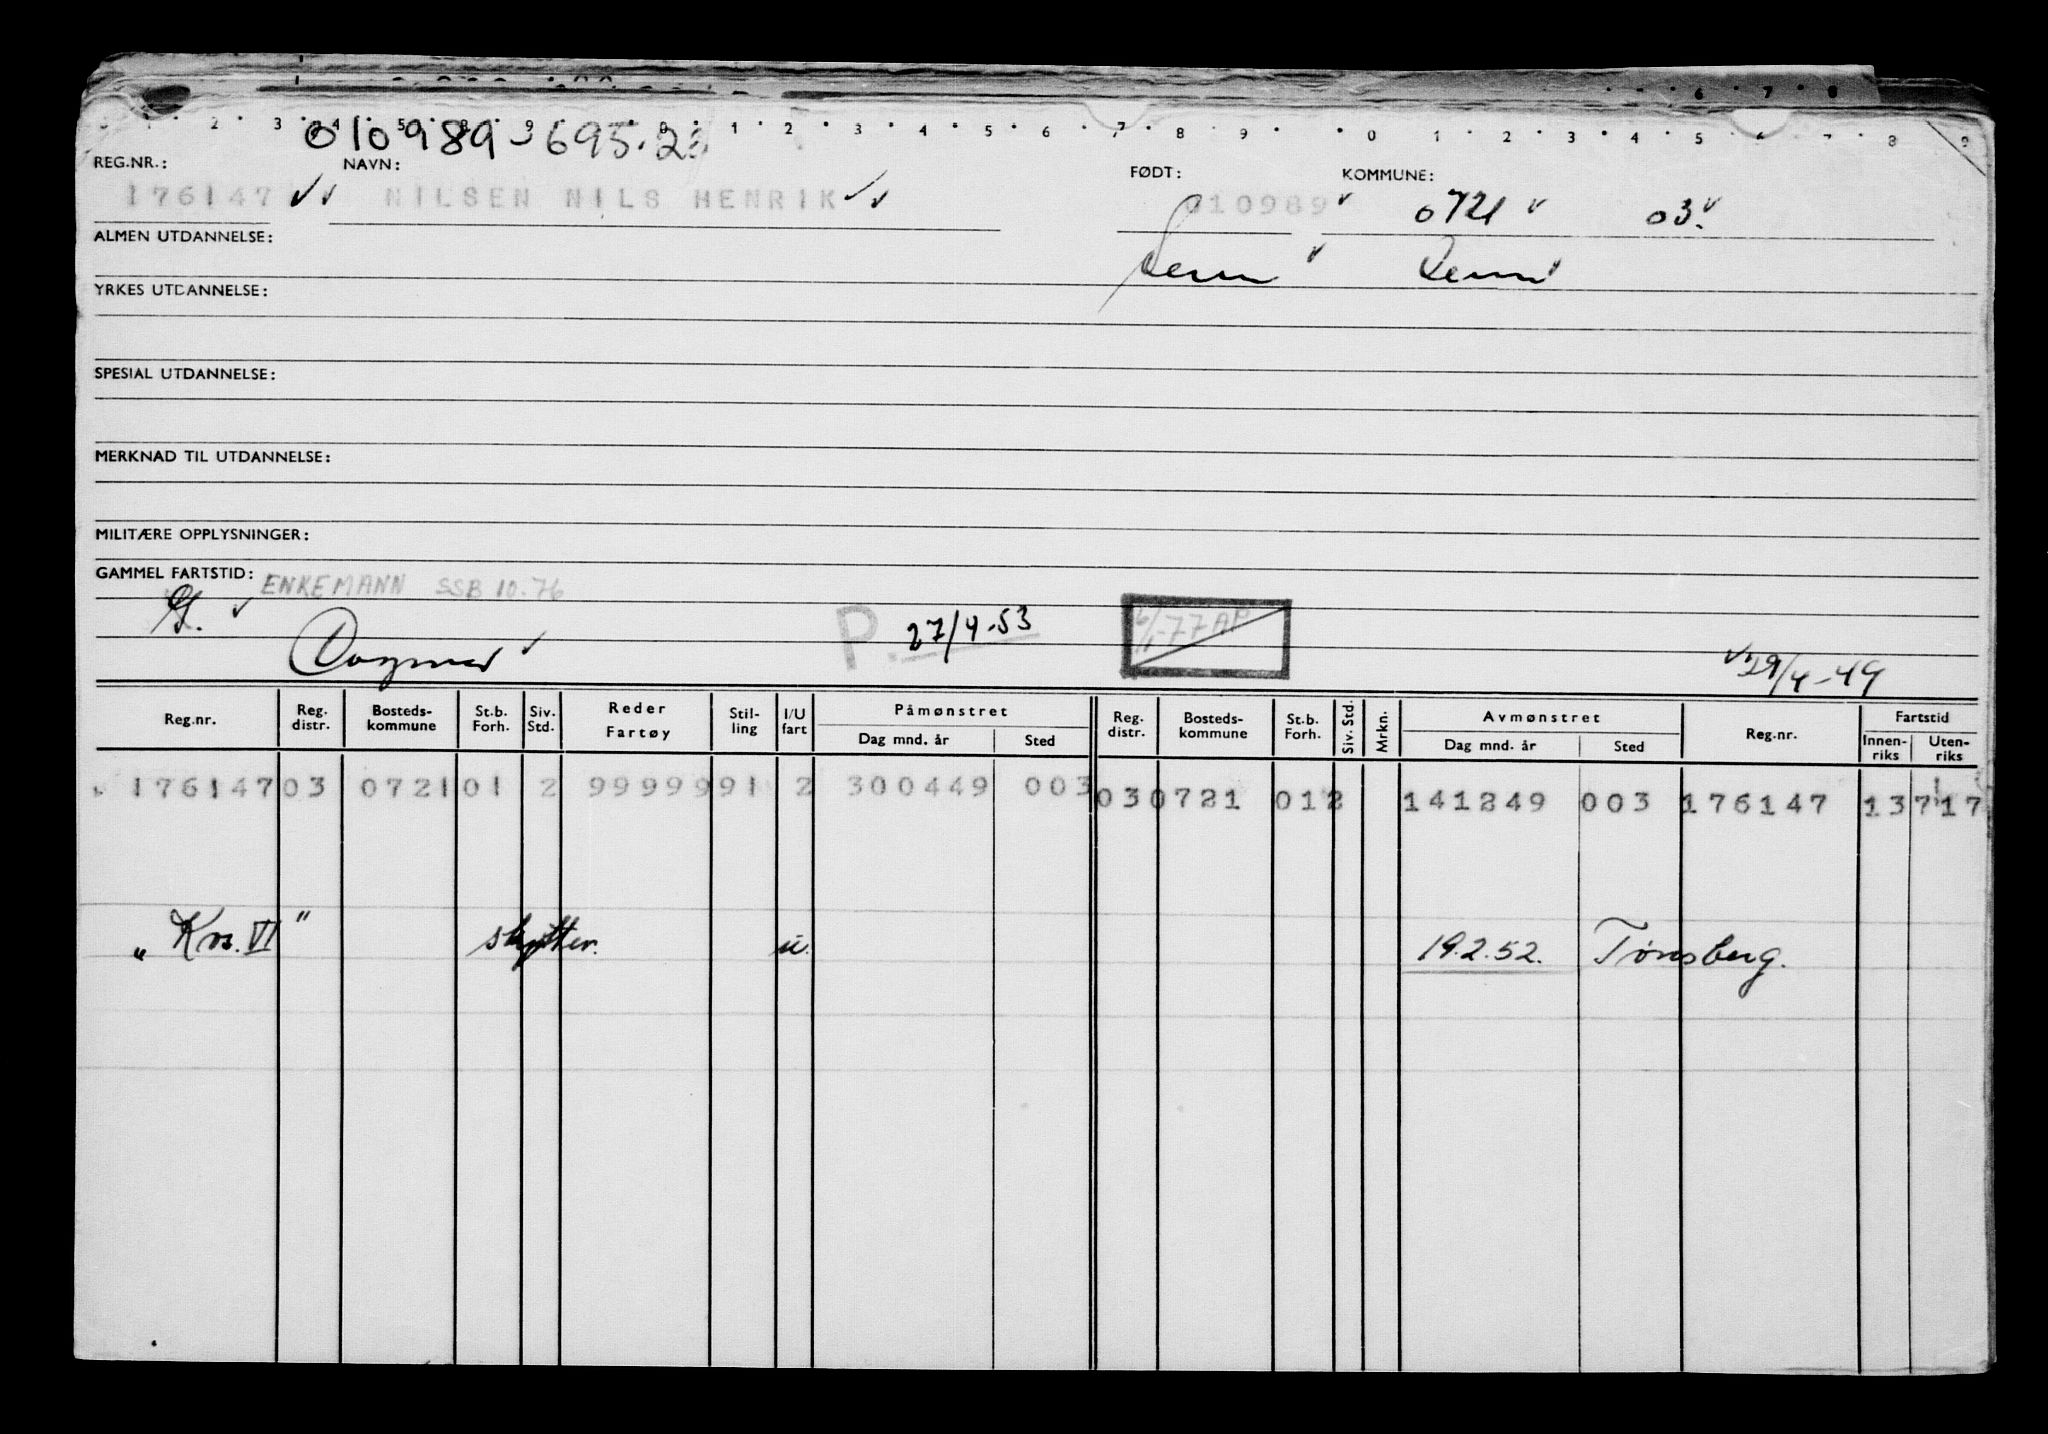 6 7 8
1 2 3 4 5 8 9 0 1 2 3 4 5 6 7 8 9 0 1 2 3 4 5 7 8 9
010989-695.2
REG.NR.: NAVN: FØDT: KOMMUNE:
176147 NILSEN NILS HENRIK 010989 0721 03.
ALMEN UTDANNELSE: Sem Sem
YRKES UTDANNELSE:
SPESIAL UTDANNELSE:
MERKNAD TIL UTDANNELSE:
MILITÆRE OPPLYSNINGER:
GAMMEL FARTSTID: ENKEMANN SSB 10.76
G. P. 27/4-53 77 AP
Dagmar 29/4-49
Reg.nr. Reg. distr. Bosteds-kommune St.b. Forh. Siv. Std. Reder Fartøy Stil-ling I/U fart Påmønstret Dag mnd. år Sted Reg. distr. Bosteds-kommune St.b. Forh. Siv. Std. Mrkn. Avmønstret Dag mnd. år Sted Reg.nr. Fartstid Innen-riks Uten-riks
176147 03 0721 01 2 9999991 2 300449 003 03 0721 01 2 141249 003 176147 13717
„Kos. VI" skytter. u. 19.2.52. Tønsberg.